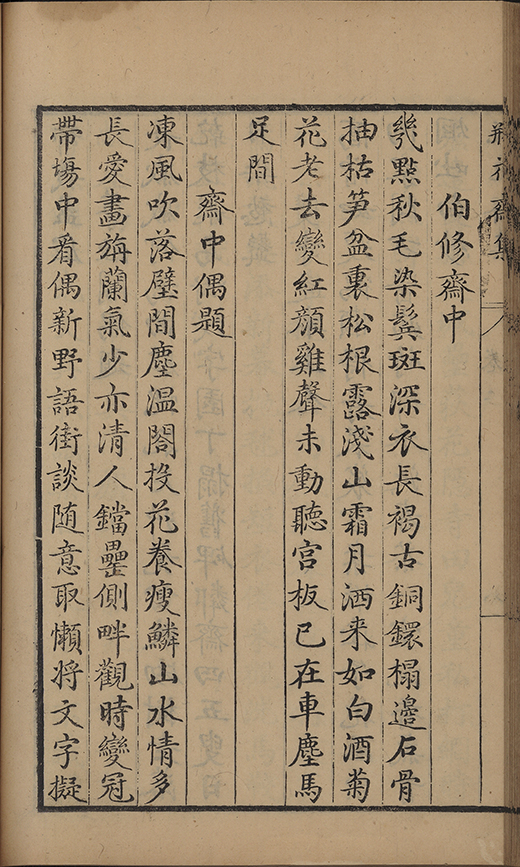 瓶花齋集
伯修齋中
幾點秋毛染鬂斑深衣長褐古銅鐶榻邊石骨
抽枯笋盆裏松根露淺山霜月洒来如白酒菊
花老去變紅顔雞聲未動聽宫板已在車塵馬
足間
齋中偶題
凍風吹落壁間塵温閤投花養瘦鱗山水情多
長愛畫旃蘭氣少亦清人鐺罍側畔觀時變冠
帶塲中看偶新野語街談随意取懶将文字擬